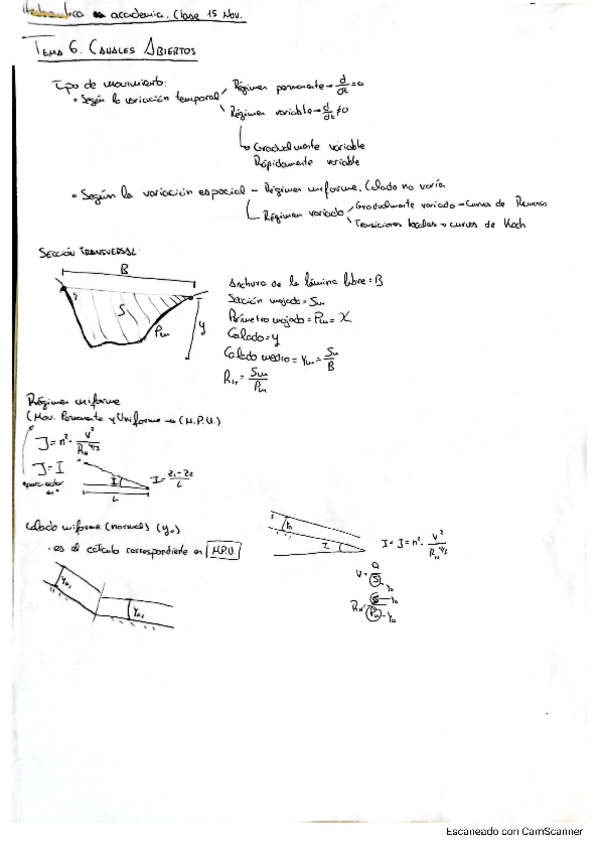 Hidraulica academia. Clase 15 Nov.
TEMA 6. CANALES ABIERTOS
Tipo de movimiento:
• Según la variación temporal
Régimen permanente → d/dt = 0
Régimen variable → d/dt ≠ 0
Gradualmente variable
Rápidamente variable
• Según la variación espacial – Régimen uniforme. Calado no varía
Régimen variado
Gradualmente variado → Curvas de Remanso
Transiciones locales → curvas de Koch
SECCIÓN TRANSVERSAL:
B
S
Pm
y
Anchura de la lámina libre = B
Sección mojada = Sm
Perímetro mojado = Pm = X
Calado = y
Calado medio = Ym = Sm/B
RH = Sm/Pm
Régimen uniforme
(Mov. Permanente y Uniforme → (M.P.U.)
J = n² · V²/RH^4/3
J = I
I
L
I = z1 - z2/L
Calado uniforme (normal) (y0)
• es el calculo correspondiente en M.P.U.
I
I = J = n² · V²/RH^4/3
V = Q/S → y0
RH = S → y0/Pm → y0
Y01
Y02
Escaneado con CamScanner